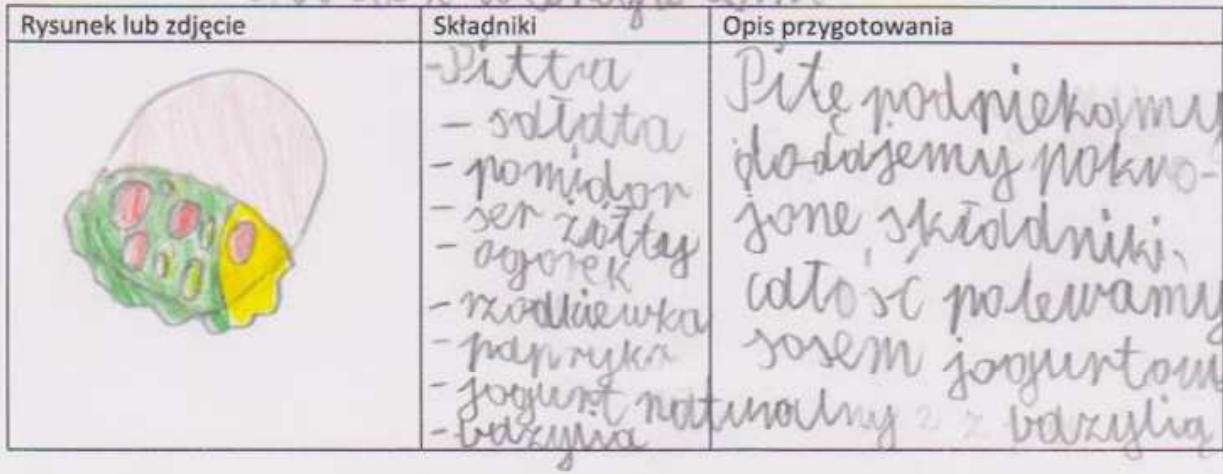 Rysunek lub zdjęcie
Składniki
Opis przygotowania
-Pitta
- sałata
- pomidor
- ser żółty
- ogorek
- rzodkiewka
- papryka
- jogurt naturalny
- bazylia
Pitę podpiekamy
dodajemy pokro-
jone składniki,
całość polewamy
sosem jogurtowy
z bazylią